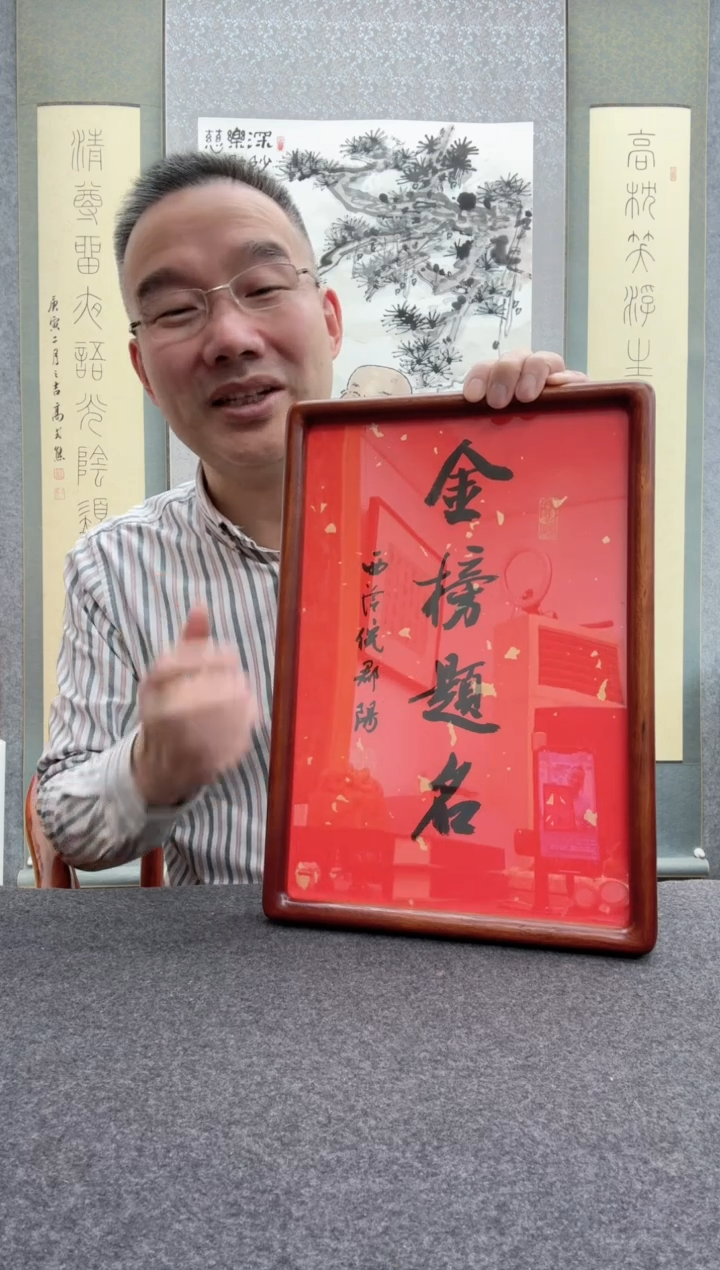 高枕笑浮生
深妙
樂
慈
金榜題名
西泠倪郡陽
清尊留夜語光陰須
庚寅二月之吉高式熊